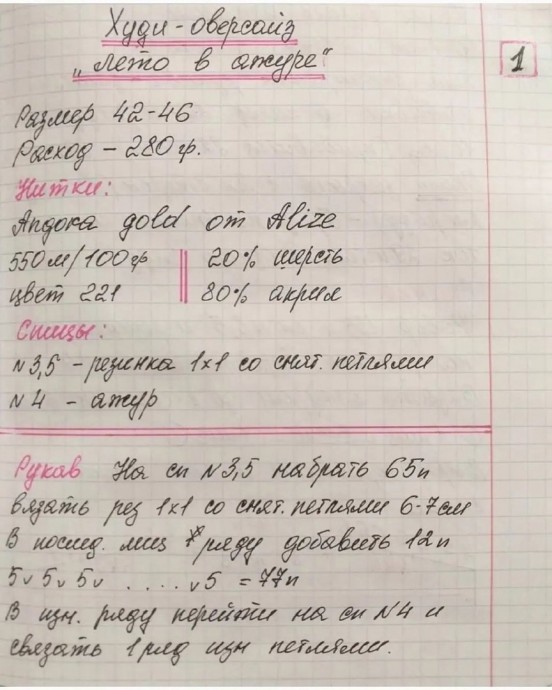 Худи-оверсайз
1
„Лето в ажуре“
Размер 42-46
Расход - 280 гр.
Нитки:
Ангора gold от Alize
550м/100гр 20% шерсть
цвет 221 80% акрил
Спицы:
N 3,5 - резинка 1x1 со снят. петлями
N 4 - ажур
Рукав На сп N 3,5 набрать 65п
вязать рез 1x1 со снят. петлями 6-7см
В послед. лиц ряду добавить 12п
5v 5v 5v . . . . . v5 = 77п
В изн. ряду перейти на сп N 4 и
связать 1 ряд изн петлями.